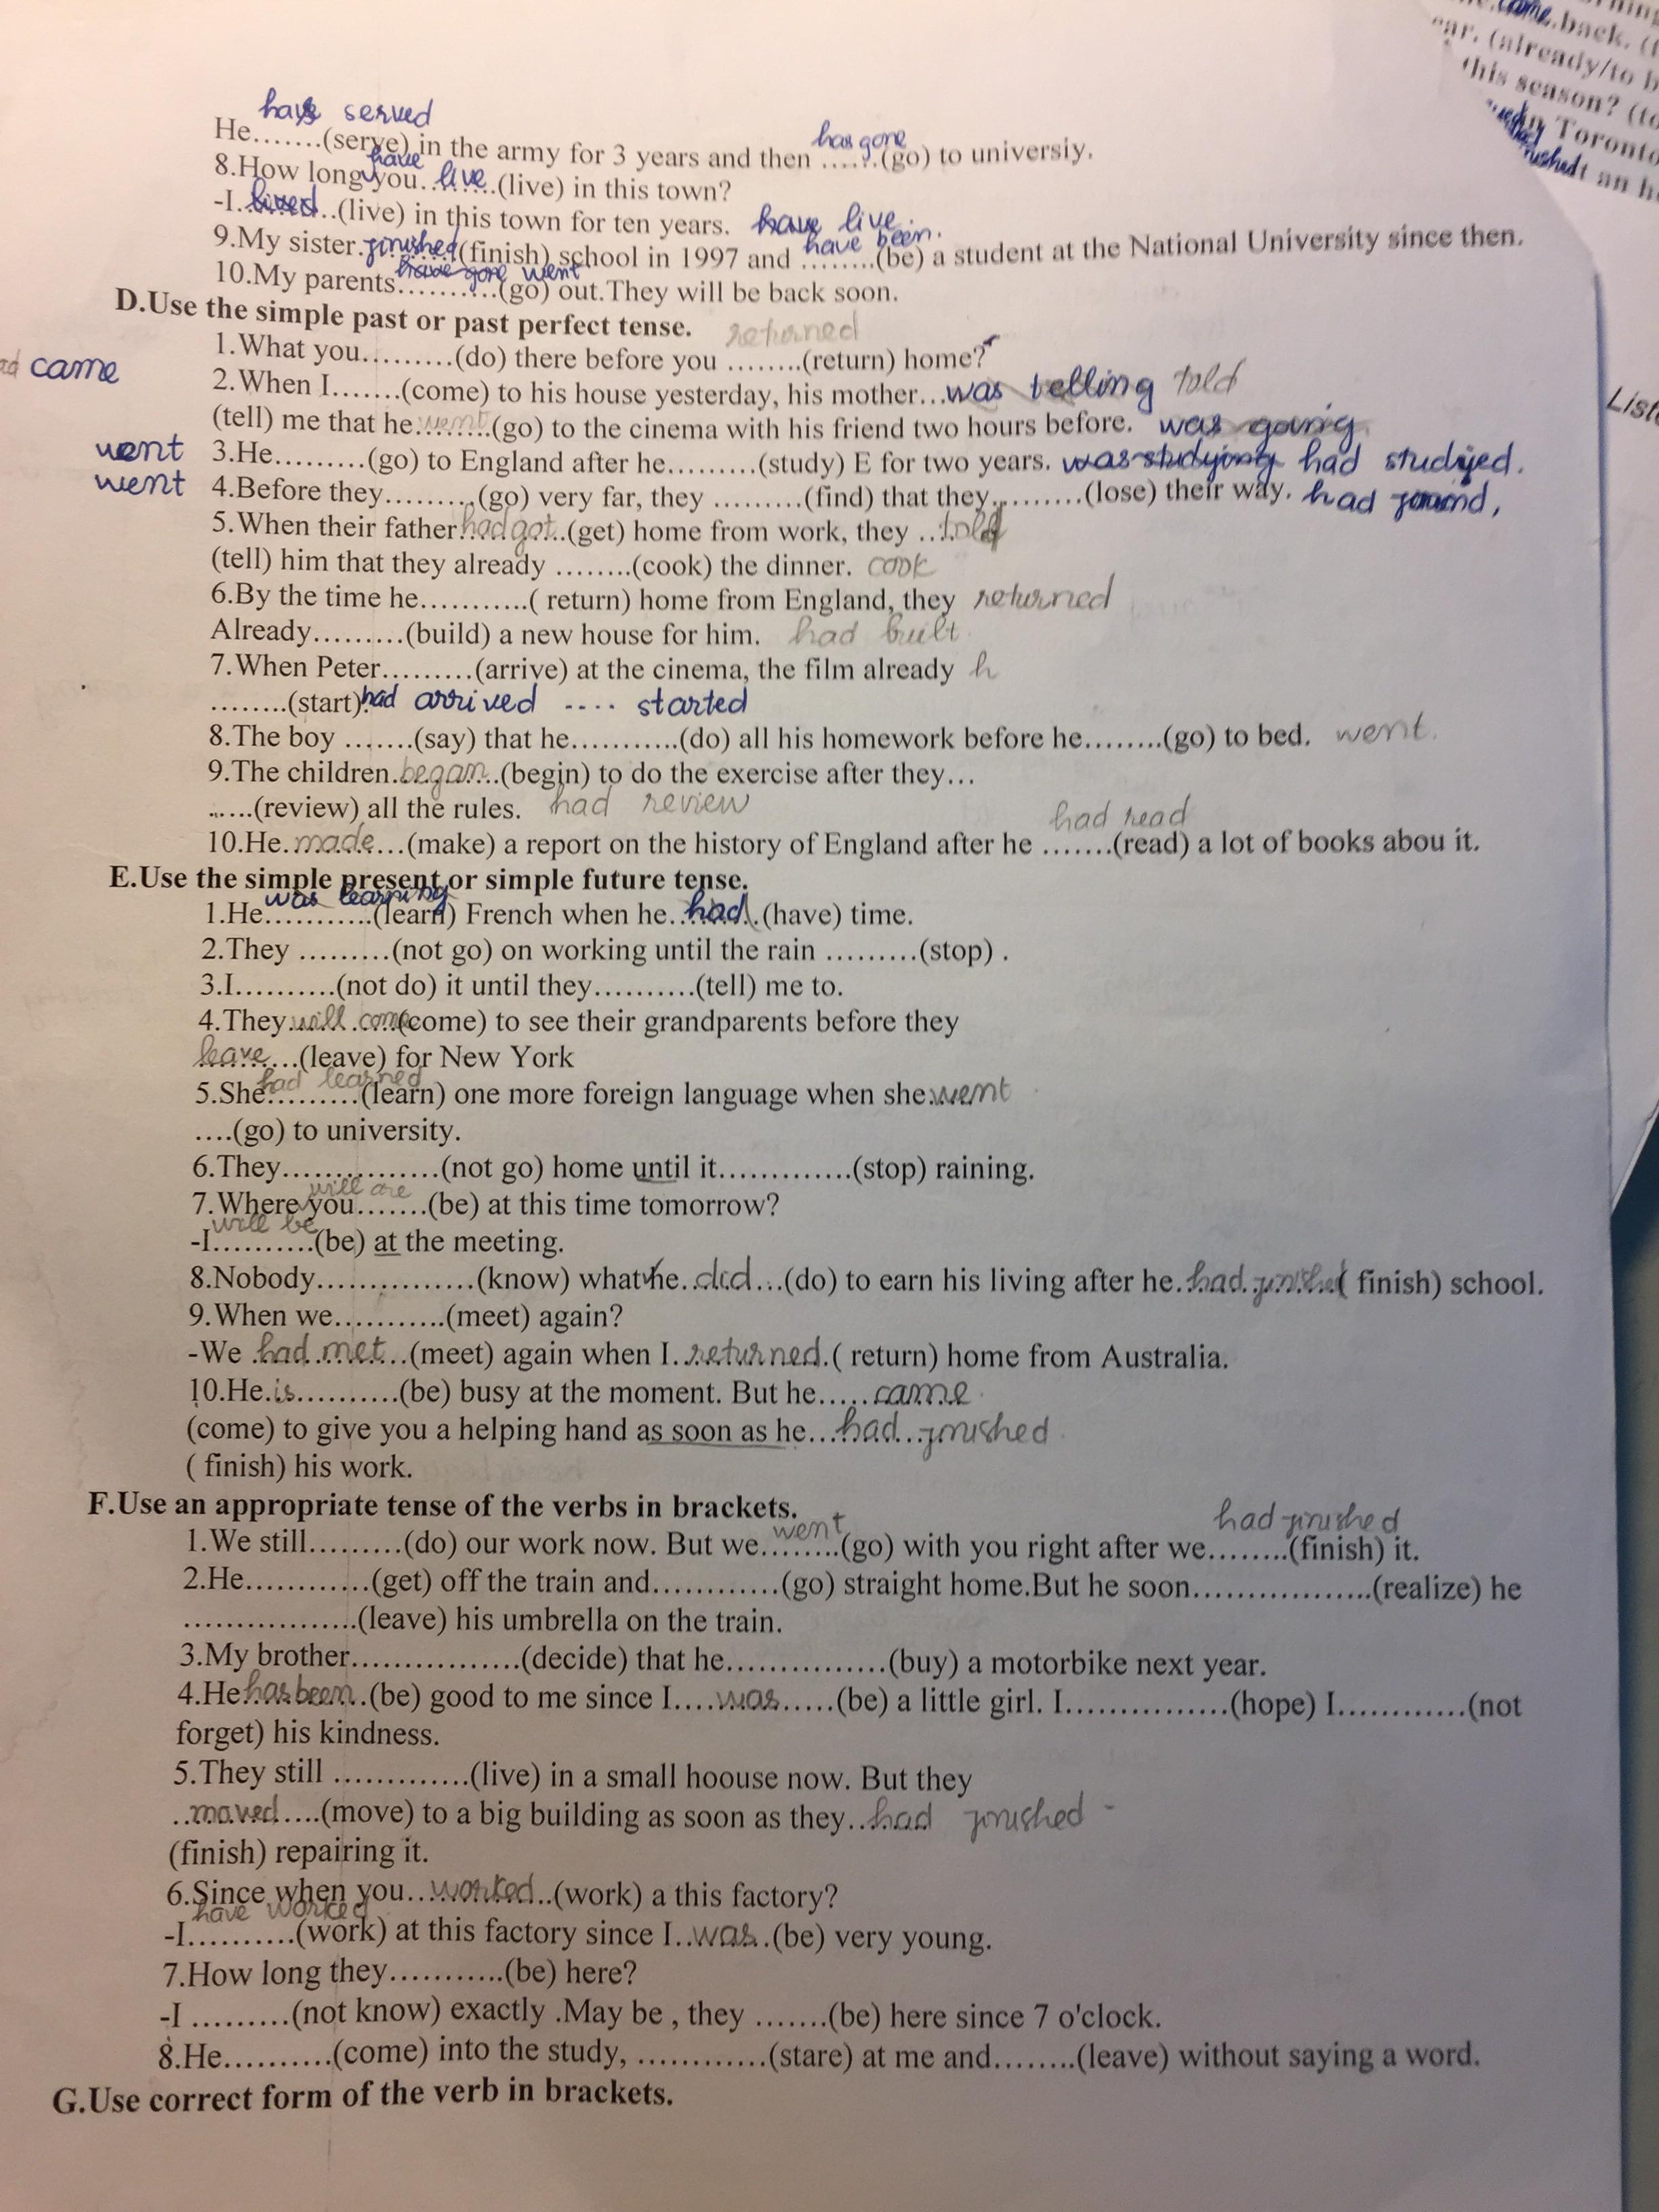 came back. (
ar. (already/to b
this season? (to
Toronto
t an h
Liste
have served
has gone
He.......(serve) in the army for 3 years and then ......(go) to universiy.
have
8.How long you..live....(live) in this town?
-I..lived..(live) in this town for ten years. have live.
have been.
9.My sister.finished(finish) school in 1997 and ........(be) a student at the National University since then.
have gone went
10.My parents..........(go) out.They will be back soon.
D.Use the simple past or past perfect tense.
returned
1.What you.........(do) there before you ........(return) home?
came
2.When I.......(come) to his house yesterday, his mother...was telling told
(tell) me that he went....(go) to the cinema with his friend two hours before. was going
went 3.He.........(go) to England after he.........(study) E for two years. was studying had studyed.
went 4.Before they.........(go) very far, they .........(find) that they..........(lose) their way. had found,
5.When their father had got...(get) home from work, they ...told
(tell) him that they already ........(cook) the dinner. cook
6.By the time he...........( return) home from England, they returned
Already.........(build) a new house for him. had built
7.When Peter.........(arrive) at the cinema, the film already h
........(start). had arrived .... started
8.The boy .......(say) that he...........(do) all his homework before he........(go) to bed. went.
9.The children.began...(begin) to do the exercise after they...
......(review) all the rules. had review
had read
10.He.made...(make) a report on the history of England after he .......(read) a lot of books abou it.
E.Use the simple present or simple future tense.
was learning
1.He...........(learn) French when he..had..(have) time.
2.They .........(not go) on working until the rain .........(stop) .
3.I..........(not do) it until they..........(tell) me to.
4.They.will come(come) to see their grandparents before they
leave...(leave) for New York
had learned
5.She.........(learn) one more foreign language when she.went
....(go) to university.
6.They...............(not go) home until it.............(stop) raining.
will are
7.Where you.......(be) at this time tomorrow?
will be
-I..........(be) at the meeting.
8.Nobody...............(know) what he..did...(do) to earn his living after he.had finished( finish) school.
9.When we...........(meet) again?
-We had met..(meet) again when I..returned.( return) home from Australia.
10.He.is..........(be) busy at the moment. But he.....came.
(come) to give you a helping hand as soon as he...had...finished
( finish) his work.
F.Use an appropriate tense of the verbs in brackets.
went
had finished
1.We still.........(do) our work now. But we........(go) with you right after we........(finish) it.
2.He............(get) off the train and............(go) straight home.But he soon.................(realize) he
.................(leave) his umbrella on the train.
3.My brother................(decide) that he...............(buy) a motorbike next year.
4.He has been..(be) good to me since I....was.....(be) a little girl. I................(hope) I............(not
forget) his kindness.
5.They still .............(live) in a small hoouse now. But they
..moved....(move) to a big building as soon as they..had finished -
(finish) repairing it.
6.Since when you...worked..(work) a this factory?
have worked
-I..........(work) at this factory since I..was..(be) very young.
7.How long they...........(be) here?
-I .........(not know) exactly .May be , they .......(be) here since 7 o'clock.
8.He..........(come) into the study, ............(stare) at me and........(leave) without saying a word.
G.Use correct form of the verb in brackets.